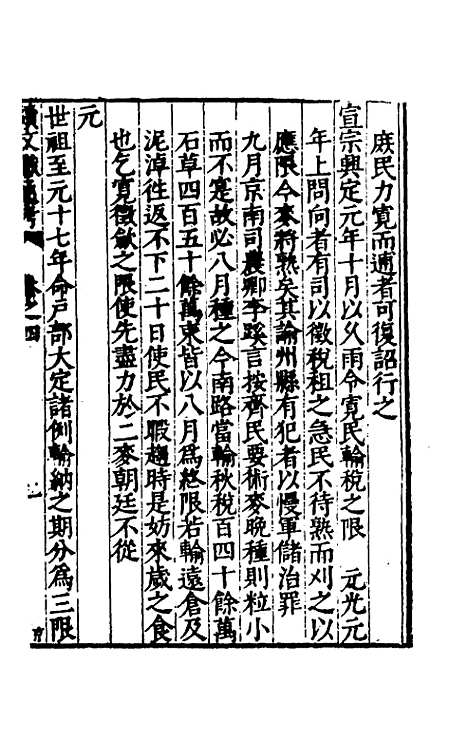 庶民力寛而逋者可復詔行之
宣宗興定元年十月以久雨令寛民輸稅之限　元光元
年上問向者有司以徵稅租之急民不待熟而刈之以
應限今麥將熟矣其諭州縣有犯者以慢軍儲治罪
九月京南司農卿李蹊言按齊民要術麥晚種則粒小
而不實故必八月種之今南路當輸秋稅百四十餘萬
石草四百五十餘萬束皆以八月爲終限若輸遠倉及
泥淖徃返不下二十日使民不暇趨時是妨來歲之食
也乞寛徵歛之限使先盡力於二麥朝廷不從
元
世祖至元十七年命戶部大定諸例輸納之期分爲三限
續文獻通考　卷之四